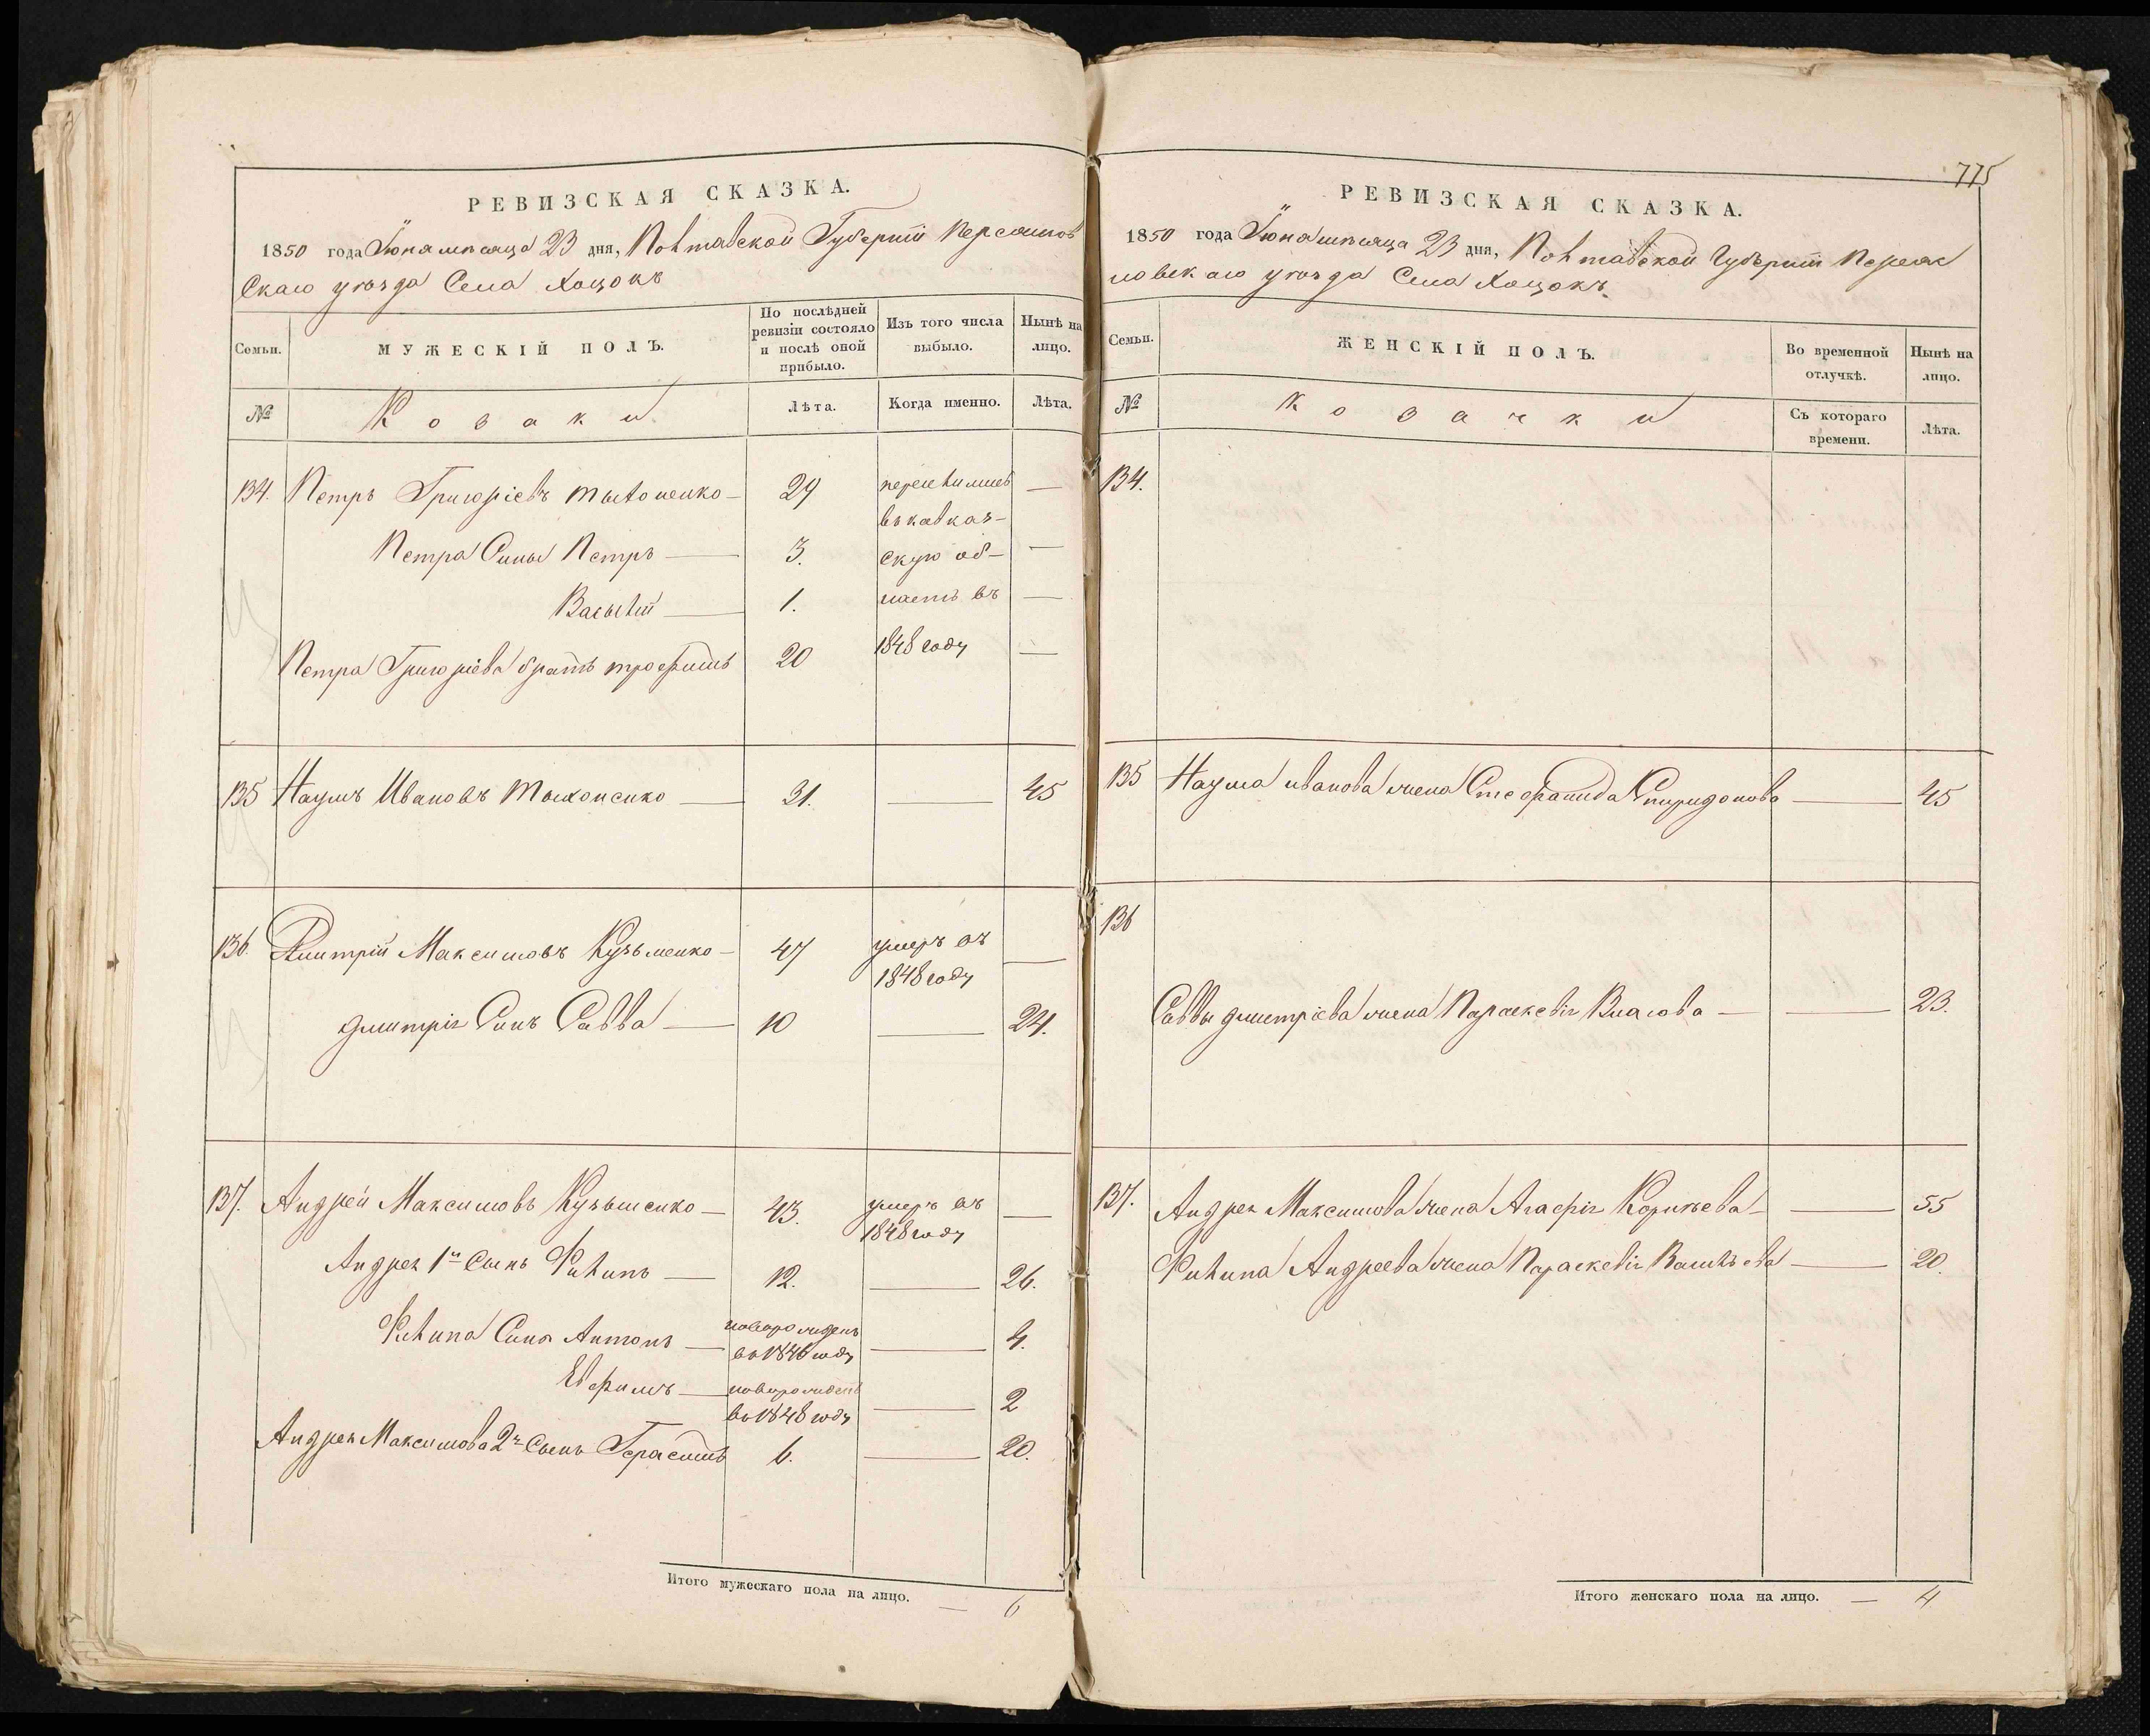 РЕВИЗСКАЯ СКАЗКА.
1850 года Іюня месяца 23 дня, Полтавской Губерніи Переяслов
скаго уѣзда Села Хоцокъ
Семьи.
МУЖЕСКІЙ ПОЛЪ.
По послѣдней ревизіи состояло и послѣ оной прибыло.
Изъ того числа выбыло.
Нынѣ на лицо.
№
Козаки
Лѣта.
Когда именно.
Лѣта.
134. Петръ Григоріевъ Тихоненко — 29 переселились —
въ кавказ-
Петра Сины Петръ — 3. скую об- —
Василій — 1. ласть въ —
1848 году
Петра Григоріева братъ трофимъ 20 —
135 Наумъ Ивановъ Тихоненко — 31. — 45
136. Дмитрій Максимовъ Кузьменко — 47 умеръ въ —
1848 году
дмитрія Синъ Савва — 10 — 24.
137. Андрей Максимовъ Кузьменко — 43. умеръ въ —
1848 году
Андрея 1й Сынъ Филипъ — 12. — 26.
Филипа Сини Антонъ — новорожденъ
въ 1846 году — 4.
Евфимъ — новорожденъ
въ 1848 году — 2
Андрея Максимова 2й Сынъ Герасимъ 6. — 20.
Итого мужескаго пола на лицо. — 6
775
РЕВИЗСКАЯ СКАЗКА.
1850 года Іюня месяца 23 дня, Полтавской Губерніи Переяс
ловскаго уѣзда Села Хоцокъ.
Семьи.
ЖЕНСКІЙ ПОЛЪ.
Во временной отлучкѣ.
Нынѣ на лицо.
№
Козачки
Съ котораго времени.
Лѣта.
134.
135 Наума иванова жена Стефанида Спиридонова — 45
136
Саввы дмитріева жена Параскевія Власова — — 23.
137. Андрея Максимова жена Агафія Корнѣева — — 55
Филипа Андреева жена Параскевія Васильева — 20.
Итого женскаго пола на лицо. — 4